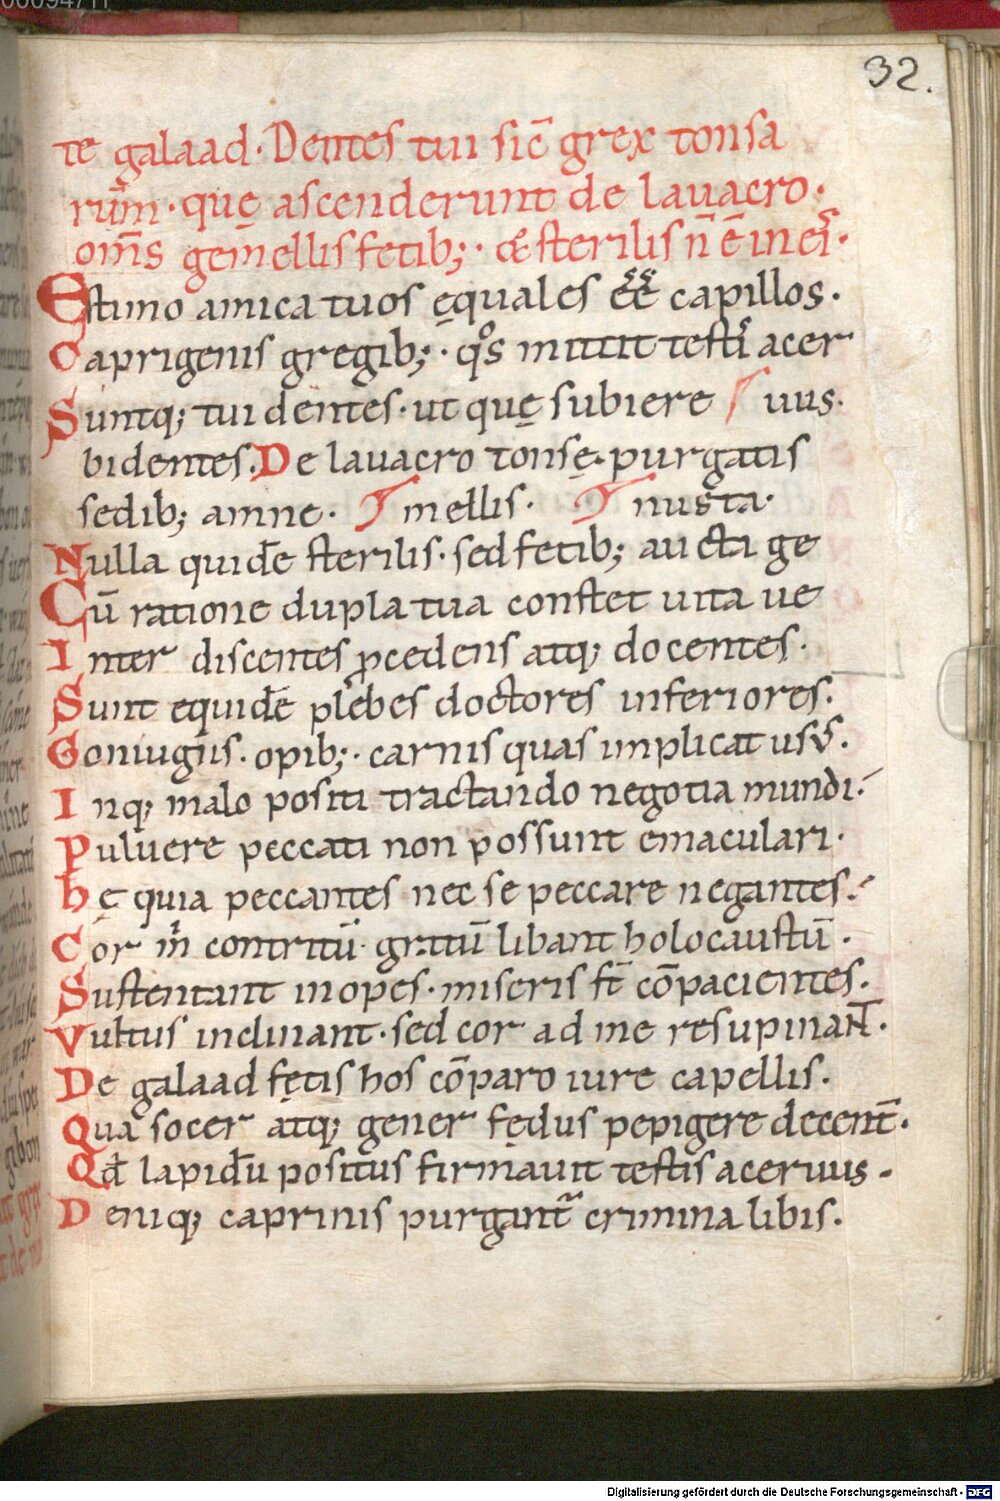 32.
te galaad. Dentes tui sic̄ grex tonsa
rūm. que ascenderunt de lauacro.
om̄s gemellis fetib; . & sterilis n̄ ē in eis.
Estimo amica tuos ęquales eē capillos.
Caprigenis gregib; . qͦs mittit testis acer
Suntq; tui dentes. ut quę subiere uus.
bidentes. De lauacro tonsę. purgatis
sedib; amne. mellis. nusta.
Nulla quidē sterilis. sed fetib; aucta ge
Cū ratione dupla tua constet uita ue
Inter discentes pcedens atq; docentes.
Sunt equidē plebes doctores inferiores.
Coniugiis. opib; . carnis quas implicat usus.
Inq; malo positi tractando negotia mundi.
Puluere peccati non possunt emaculari.
hę quia peccantes nec se peccare negantes.
Cor m̄ contritū. gratū libant holocaustū.
Sustentant inopes. miseris st̄ cōpacientes.
Vultus inclinant. sed cor ad me resupinant.
De galaad fetis hos cōparo iure capellis.
Quā socer atq; gener fędus pepigere decent̄.
Qd̄ lapidū positus firmauit testis aceruus.
Deniq; caprinis purgant̄ crimina libis.
Digitalisierung gefördert durch die Deutsche Forschungsgemeinschaft - DFG